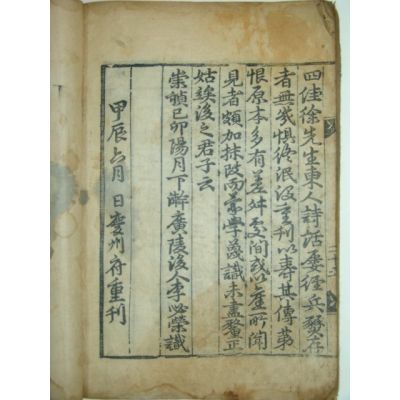 四佳徐先生東人詩話屢經兵燹存
者無幾惧終泯沒重刊以壽其傳第
恨原本多有差舛處間或以舊所聞
見者頗加抹改而蒙學蔑識未盡釐正
姑竢後之君子云
崇禎己卯陽月下澣廣陵後人李必榮識
甲辰六月 日慶州府重刊